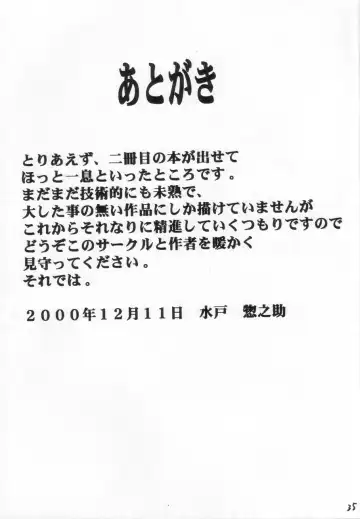 あとがき
とりあえず、二冊目の本が出せて
ほっと一息といったところです。
まだまだ技術的にも未熟で、
大した事の無い作品にしか描けていませんが
これからそれなりに精進していくつもりですので
どうぞこのサークルと作者を暖かく
見守ってください。
それでは。
２０００年１２月１１日　水戸　惣之助
35